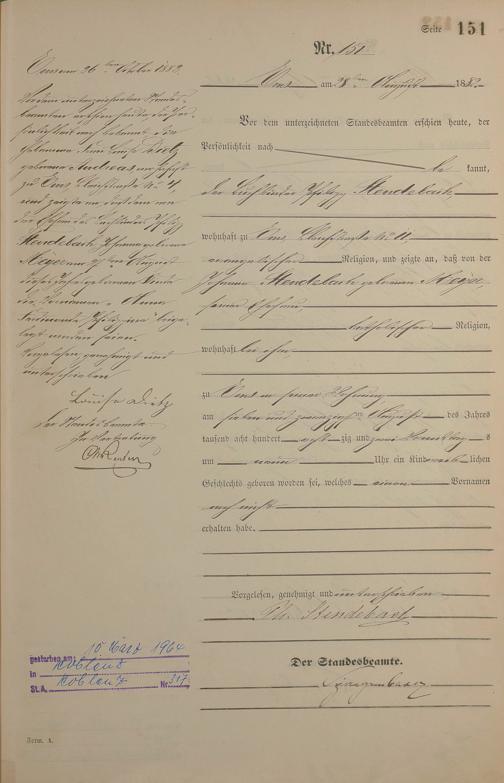 Seite 151
Nr. 151
Ems am 28ten August 1882.
Vor dem unterzeichneten Standesbeamten erschien heute, der
Persönlichkeit nach
be kannt,
der Buchbinder Philipp Stendebach
wohnhaft zu Ems, No 11,
evangelischer Religion, und zeigte an, daß von der
Johanna Stendebach geborenen Meyer
seiner Ehefrau
katholischer Religion,
wohnhaft bei ihm,
zu Ems in seiner Wohnung
am sieben und zwanzigsten August des Jahres
tausend acht hundert acht zig und zwei Vormittags
um neun Uhr ein Kind weiblichen
Geschlechts geboren worden sei, welches einen Vornamen
noch nicht
erhalten habe.
Vorgelesen, genehmigt und unterschrieben
Ph. Stendebach
Der Standesbeamte.
Ems am 26ten October 1882.
Vor dem unterzeichneten Standes-
beamten erschien heute, der Per-
sönlichkeit nach bekannt, die
Hebamme Louise Dietz
geborene Andreas wohnhaft
zu Ems No 4
und zeigte an, daß dem von
der Ehefrau des Buchbinders Philipp
Stendebach, Johanna geborene
Meyer am August
dieses Jahres geborenen Kinde
die Vornamen Anna
beige-
legt worden seien.
Vorgelesen, genehmigt und
unterschrieben
Louise Dietz
Der Standesbeamte
In Vertretung
gestorben am: 10. März 1964
in Koblenz
St.A. Koblenz Nr. 317
Form. A.